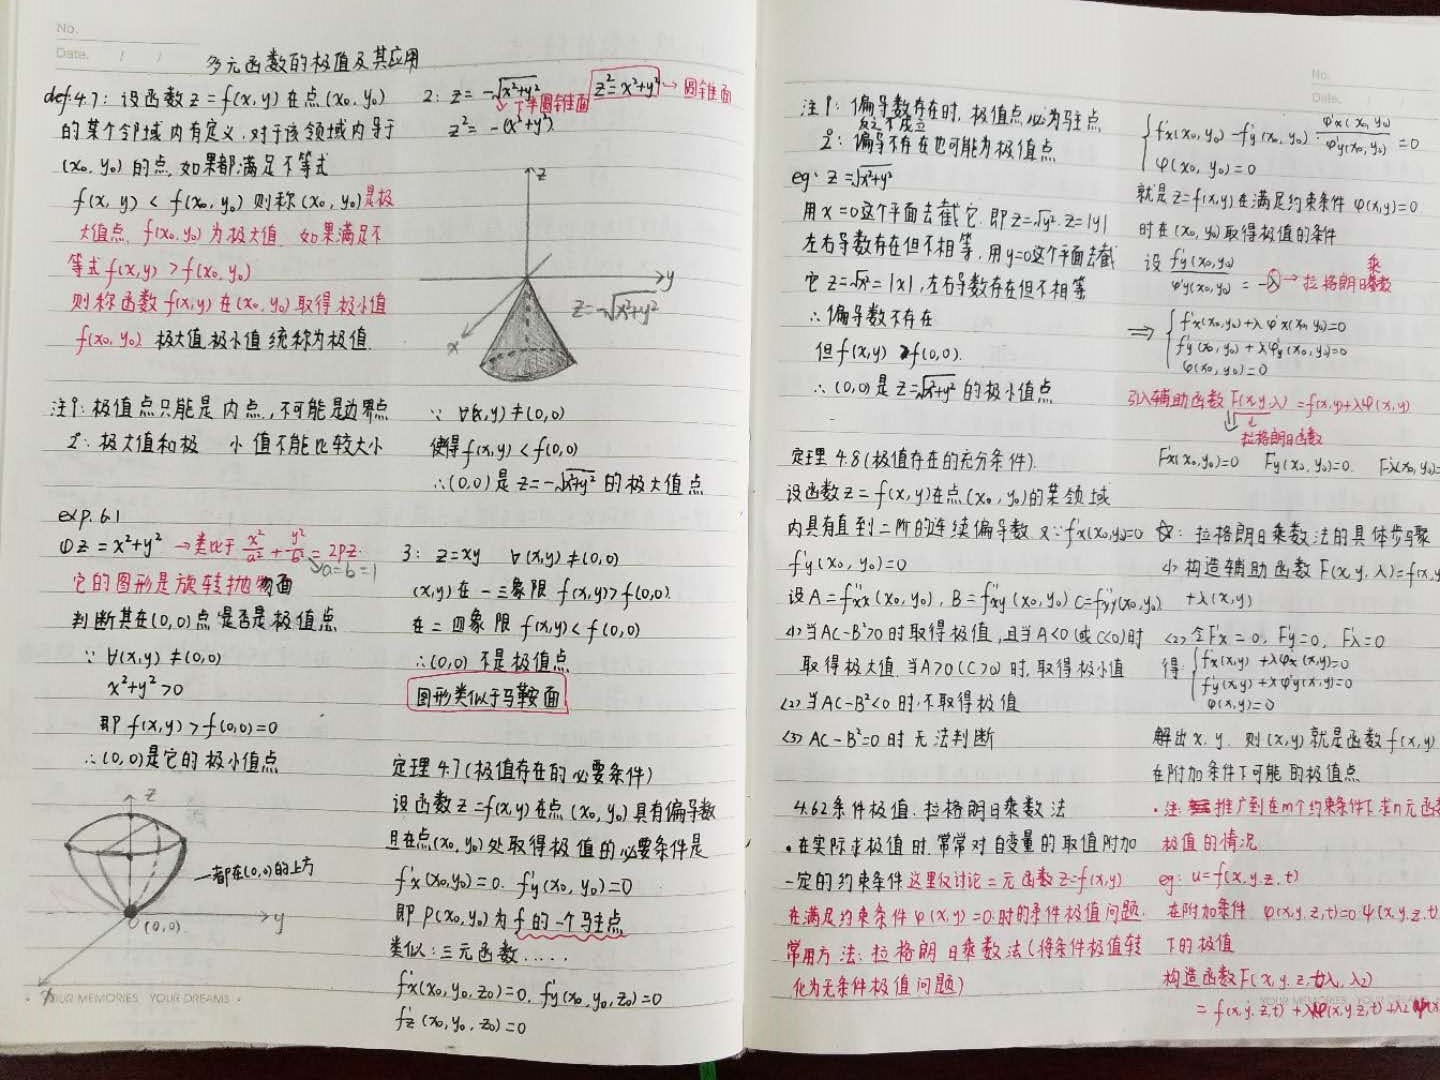 No.
Date. / /
多元函数的极值及其应用
def 4.7: 设函数 z = f(x, y) 在点 (x₀, y₀)
的某个邻域内有定义, 对于该领域内异于
(x₀, y₀) 的点, 如果都满足不等式
f(x, y) < f(x₀, y₀) 则称 (x₀, y₀) 是极
大值点, f(x₀, y₀) 为极大值. 如果满足不
等式 f(x, y) > f(x₀, y₀)
则称函数 f(x, y) 在 (x₀, y₀) 取得极小值
f(x₀, y₀) 极大值极小值统称为极值.
注 1°: 极值点只能是内点, 不可能是边界点
2°: 极大值和极 小值不能比较大小
exp. 6.1
① z = x²+y² → 类比于 x²/a² + y²/b² = 2pz.
a=b=1
它的图形是旋转抛物面
判断其在 (0,0) 点是否是极值点
∵ ∀(x,y) ≠ (0,0)
x²+y² > 0
即 f(x,y) > f(0,0) = 0
∴ (0,0) 是它的极小值点
z
一都在(0,0)的上方
y
(0,0)
x
YOUR MEMORIES YOUR DREAMS
2: z = -√x²+y² z² = x²+y² → 圆锥面
↘ 下半圆锥面
z² = -(x²+y²)
z
y
z = -√x²+y²
x
∵ ∀(x,y) ≠ (0,0)
使得 f(x,y) < f(0,0)
∴ (0,0) 是 z = -√x²+y² 的极大值点
3: z = xy ∀(x,y) ≠ (0,0)
(x,y) 在一三象限 f(x,y) > f(0,0)
在二四象限 f(x,y) < f(0,0)
∴ (0,0) 不是极值点
图形类似于马鞍面
定理 4.7 (极值存在的必要条件)
设函数 z = f(x,y) 在点 (x₀, y₀) 具有偏导数
且在点 (x₀, y₀) 处取得极值的必要条件是
f'x(x₀,y₀) = 0. f'y(x₀, y₀) = 0
即 P(x₀, y₀) 为 f 的一个驻点
类似: 三元函数.....
f'x(x₀, y₀, z₀) = 0, f'y(x₀, y₀, z₀) = 0
f'z(x₀, y₀, z₀) = 0
注 1°: 偏导数存在时, 极值点必为驻点
反之不成立
2°: 偏导不存在也可能为极值点
eg: z = √x²+y²
用 x=0 这个平面去截它. 即 z = √y². z = |y|
左右导数存在但不相等, 用 y=0 这个平面去截
它 z = √x² = |x|, 左右导数存在但不相等
∴ 偏导数不存在
但 f(x,y) > f(0,0).
∴ (0,0) 是 z = √x²+y² 的极小值点
定理 4.8 (极值存在的充分条件).
设函数 z = f(x,y) 在点 (x₀, y₀) 的某领域
内具有直到二阶的连续偏导数 又∵ f'x(x₀,y₀)=0
f'y(x₀, y₀) = 0
设 A = f''xx(x₀, y₀), B = f''xy(x₀, y₀) C = f''yy(x₀, y₀)
<1> 当 AC-B²>0 时取得极值, 且当 A<0 (或 C<0) 时
取得极大值. 当 A>0 (C>0) 时, 取得极小值
<2> 当 AC-B²<0 时, 不取得极值
<3> AC-B²=0 时无法判断
4.6.2 条件极值. 拉格朗日乘数法
• 在实际求极值时. 常常对自变量的取值附加
一定的约束条件 这里仅讨论二元函数 z=f(x,y)
在满足约束条件 φ(x,y)=0 时的条件极值问题.
常用方法: 拉格朗日乘数法 (将条件极值转
化为无条件极值问题)
No.
Date. / /
{ f'x(x₀, y₀) - f'y(x₀, y₀) · φ'x(x₀, y₀)/φ'y(x₀, y₀) = 0
φ(x₀, y₀) = 0
就是 z=f(x,y) 在满足约束条件 φ(x,y)=0
时在 (x₀, y₀) 取得极值的条件
设 f'y(x₀,y₀)/φ'y(x₀,y₀) = -λ → 拉格朗日乘数
⇒ { f'x(x₀,y₀)+λφ'x(x₀, y₀)=0
f'y(x₀, y₀)+λφ'y(x₀, y₀)=0
φ(x₀, y₀)=0
引入辅助函数 F(x,y,λ) = f(x,y)+λφ(x,y)
L
拉格朗日函数
F'x(x₀,y₀)=0 F'y(x₀, y₀)=0. F'λ(x₀, y₀)=
☆: 拉格朗日乘数法的具体步骤
<1> 构造辅助函数 F(x, y, λ) = f(x, y
+λ(x,y)
<2> 令 F'x = 0, F'y = 0, F'λ = 0
得: { f'x(x,y) +λφx(x,y)=0
f'y(x,y) +λφ'y(x,y)=0
φ(x,y)=0
解出 x. y. 则 (x,y) 就是函数 f(x,y)
在附加条件下可能的极值点
• 注: 推广到在m个约束条件下求n元函数
极值的情况
eg: u=f(x,y,z,t)
在附加条件 φ(x,y,z,t)=0 ψ(x,y,z,t)
下的极值
构造函数 F(x, y, z, t, λ₁, λ₂)
= f(x,y,z,t) + λ₁φ(x,y,z,t) + λ₂ψ(x
YOUR MEMORIES